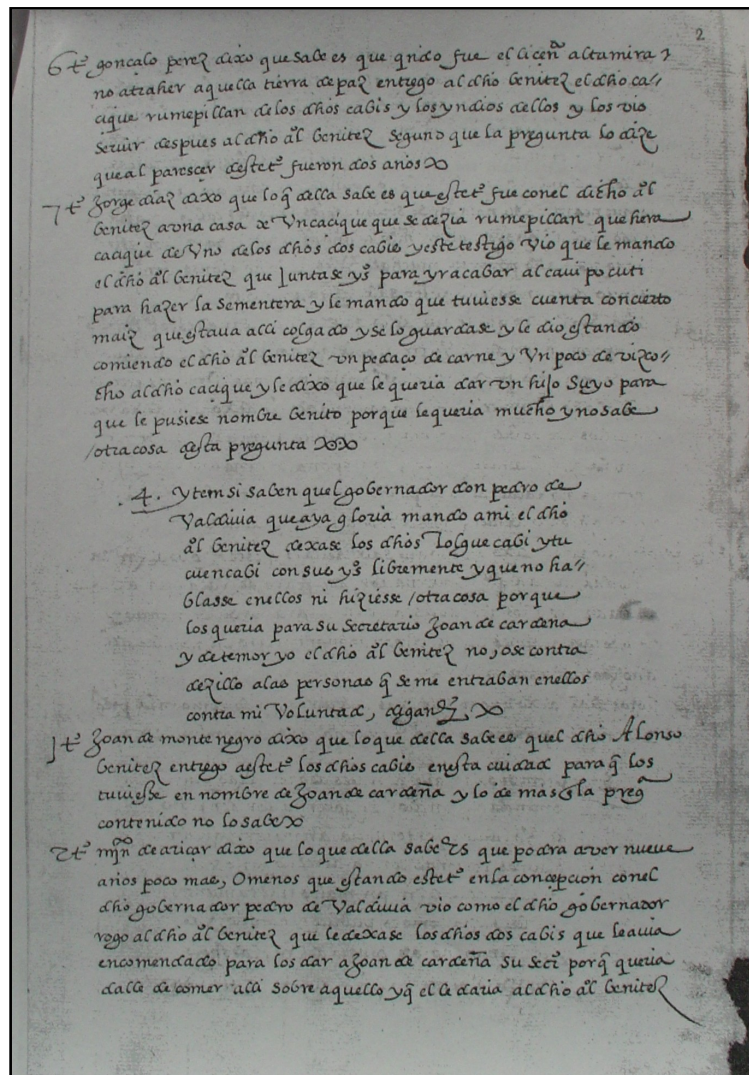 2
6 tº gonçalo perez dixo que sabe es que qndo fue el licenº altamirar
no atraher aquella tierra de paz entrego al dho benitez el dho ca//
cique rumepillan de los dhos cabis y los yndios dellos y los vio
seruir despues al dho aº benitez segund que la pregunta lo dize
que al parescer deste tº fueron dos años
7 tº Joege diaz dixo que lo q̃ della sabe es que este tº fue con el dicho aº
benitez a vna casa de vn cacique que se dezia rumepillan que hera
cacique de vno de los dhos dos cabis y este testigo vio que le mando
el dho aº benitez que juntase ysº para yr acabar al caui pocuti
para hazer la sementera y le mando que tuuiesse cuenta con cierto
maiz que estaua alli colgado y se lo guardase y le dio estando
comiendo el dho aº benitez vn pedaço de carne y vn poco de vizco//
cho al dho cacique y le dixo que le queria dar vn hijo suyo para
que le pusiese nombre benito porque le queria mucho y no sabe
/otra cosa desta pregunta
.4. ytem si saben quel gobernador don pedro de
Valdiuia que aya gloria mando a mi el dho
aº benitez dexase los dhos Tolgue cabi y tu
cuencabi con sus ysº libremente y que no ha//
blasse en ellos ni hiziesse /otra cosa porque
los queria para su secretario Joan de cardeña
y de temor yo el dho aº benitez no, ose contra
dezillo a las personas q̃ se me entraban en ellos
contra mi voluntad, digan
1 tº Joan de montenegro dixo que lo que della sabe es quel dho Alonso
benitez entrego a este tº los dhos cabis en esta ciudad para q̃ los
tuuiesse en nombre de Joan de cardeña y lo demas en la pregª
contenido no lo sabe
2 tº mjn de ariçar dixo que lo que della sabe es que podra aver nueue
años poco mas, O menos que estando este tº en la concepcion con el
dho gobernador pedro de Valdiuia vio como el dho gobernador
rogo al dho aº benitez que le dexase los dhos dos cabis que le auia
encomendado para los dar a Joan de cardeña su secrº porq̃ queria
dalle de comer alli sobre aquello y q̃ el le daria al dho aº benitez